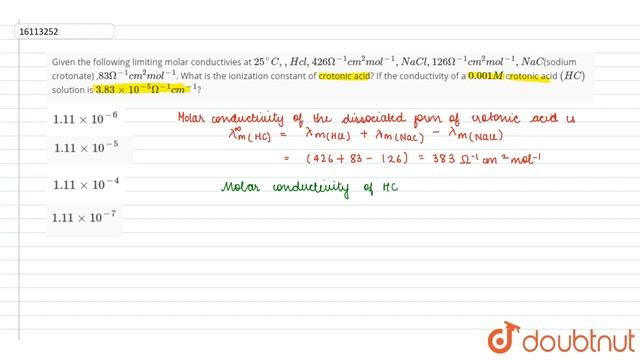 16113252
Given the following limiting molar conductivies at 25°C, , Hcl, 426Ω⁻¹cm²mol⁻¹, NaCl, 126Ω⁻¹cm²mol⁻¹, NaC(sodium
crotonate) ,83Ω⁻¹cm²mol⁻¹. What is the ionization constant of crotonic acid? If the conductivity of a 0.001M crotonic acid (HC)
solution is 3.83 × 10⁻⁵Ω⁻¹cm⁻¹?
1.11 × 10⁻⁶
1.11 × 10⁻⁵
1.11 × 10⁻⁴
1.11 × 10⁻⁷
Molar conductivity of the dissociated form of crotonic acid is
λ∞m(HC) = λm(HCl) + λm(NaC) − λm(NaCl)
= (426 + 83 − 126) = 383 Ω⁻¹ cm² mol⁻¹
Molar conductivity of HC
doubtnut